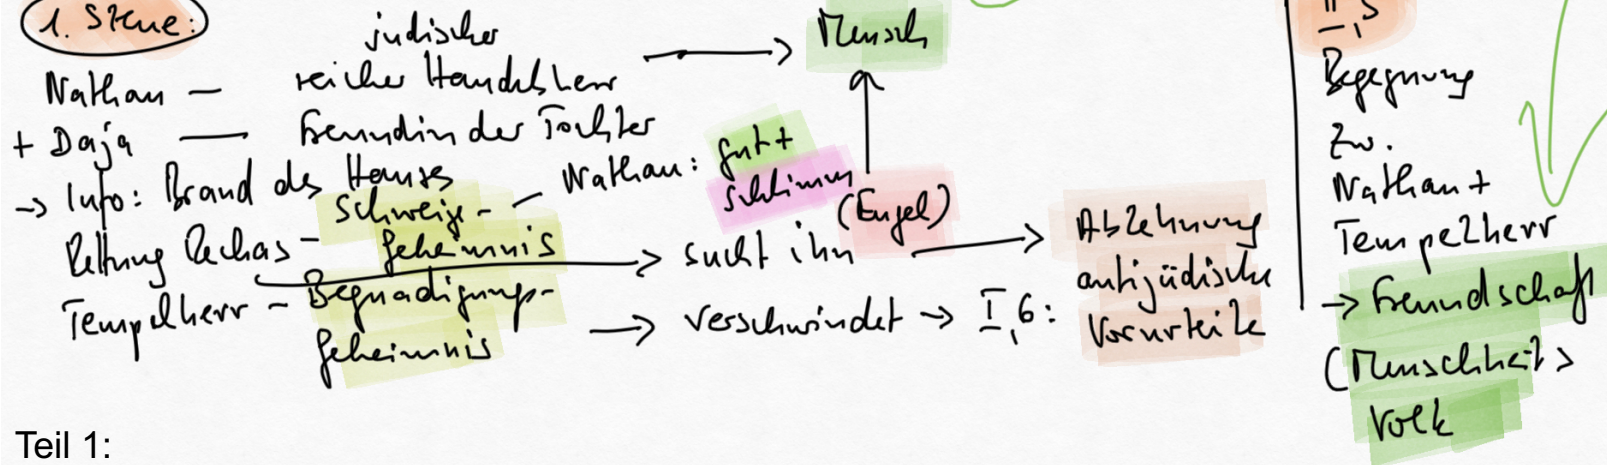 1. Szene:
jüdischer
Nathan — reicher Handelsherr → Mensch
+ Daja — Freundin der Tochter
→ Info: Brand des Hauses
Rettung Rechas – Schweige-geheimnis – Nathan: gut + schlimm
(Engel)
→ sucht ihn → Ablehnung
antijüdische
Vorurteile
Tempelherr – Begnadigungs-
geheimnis → verschwindet → I,6:
II,5
Begegnung
zw.
Nathan +
Tempelherr
→ Freundschaft
(Menschheit >
Volk
Teil 1: